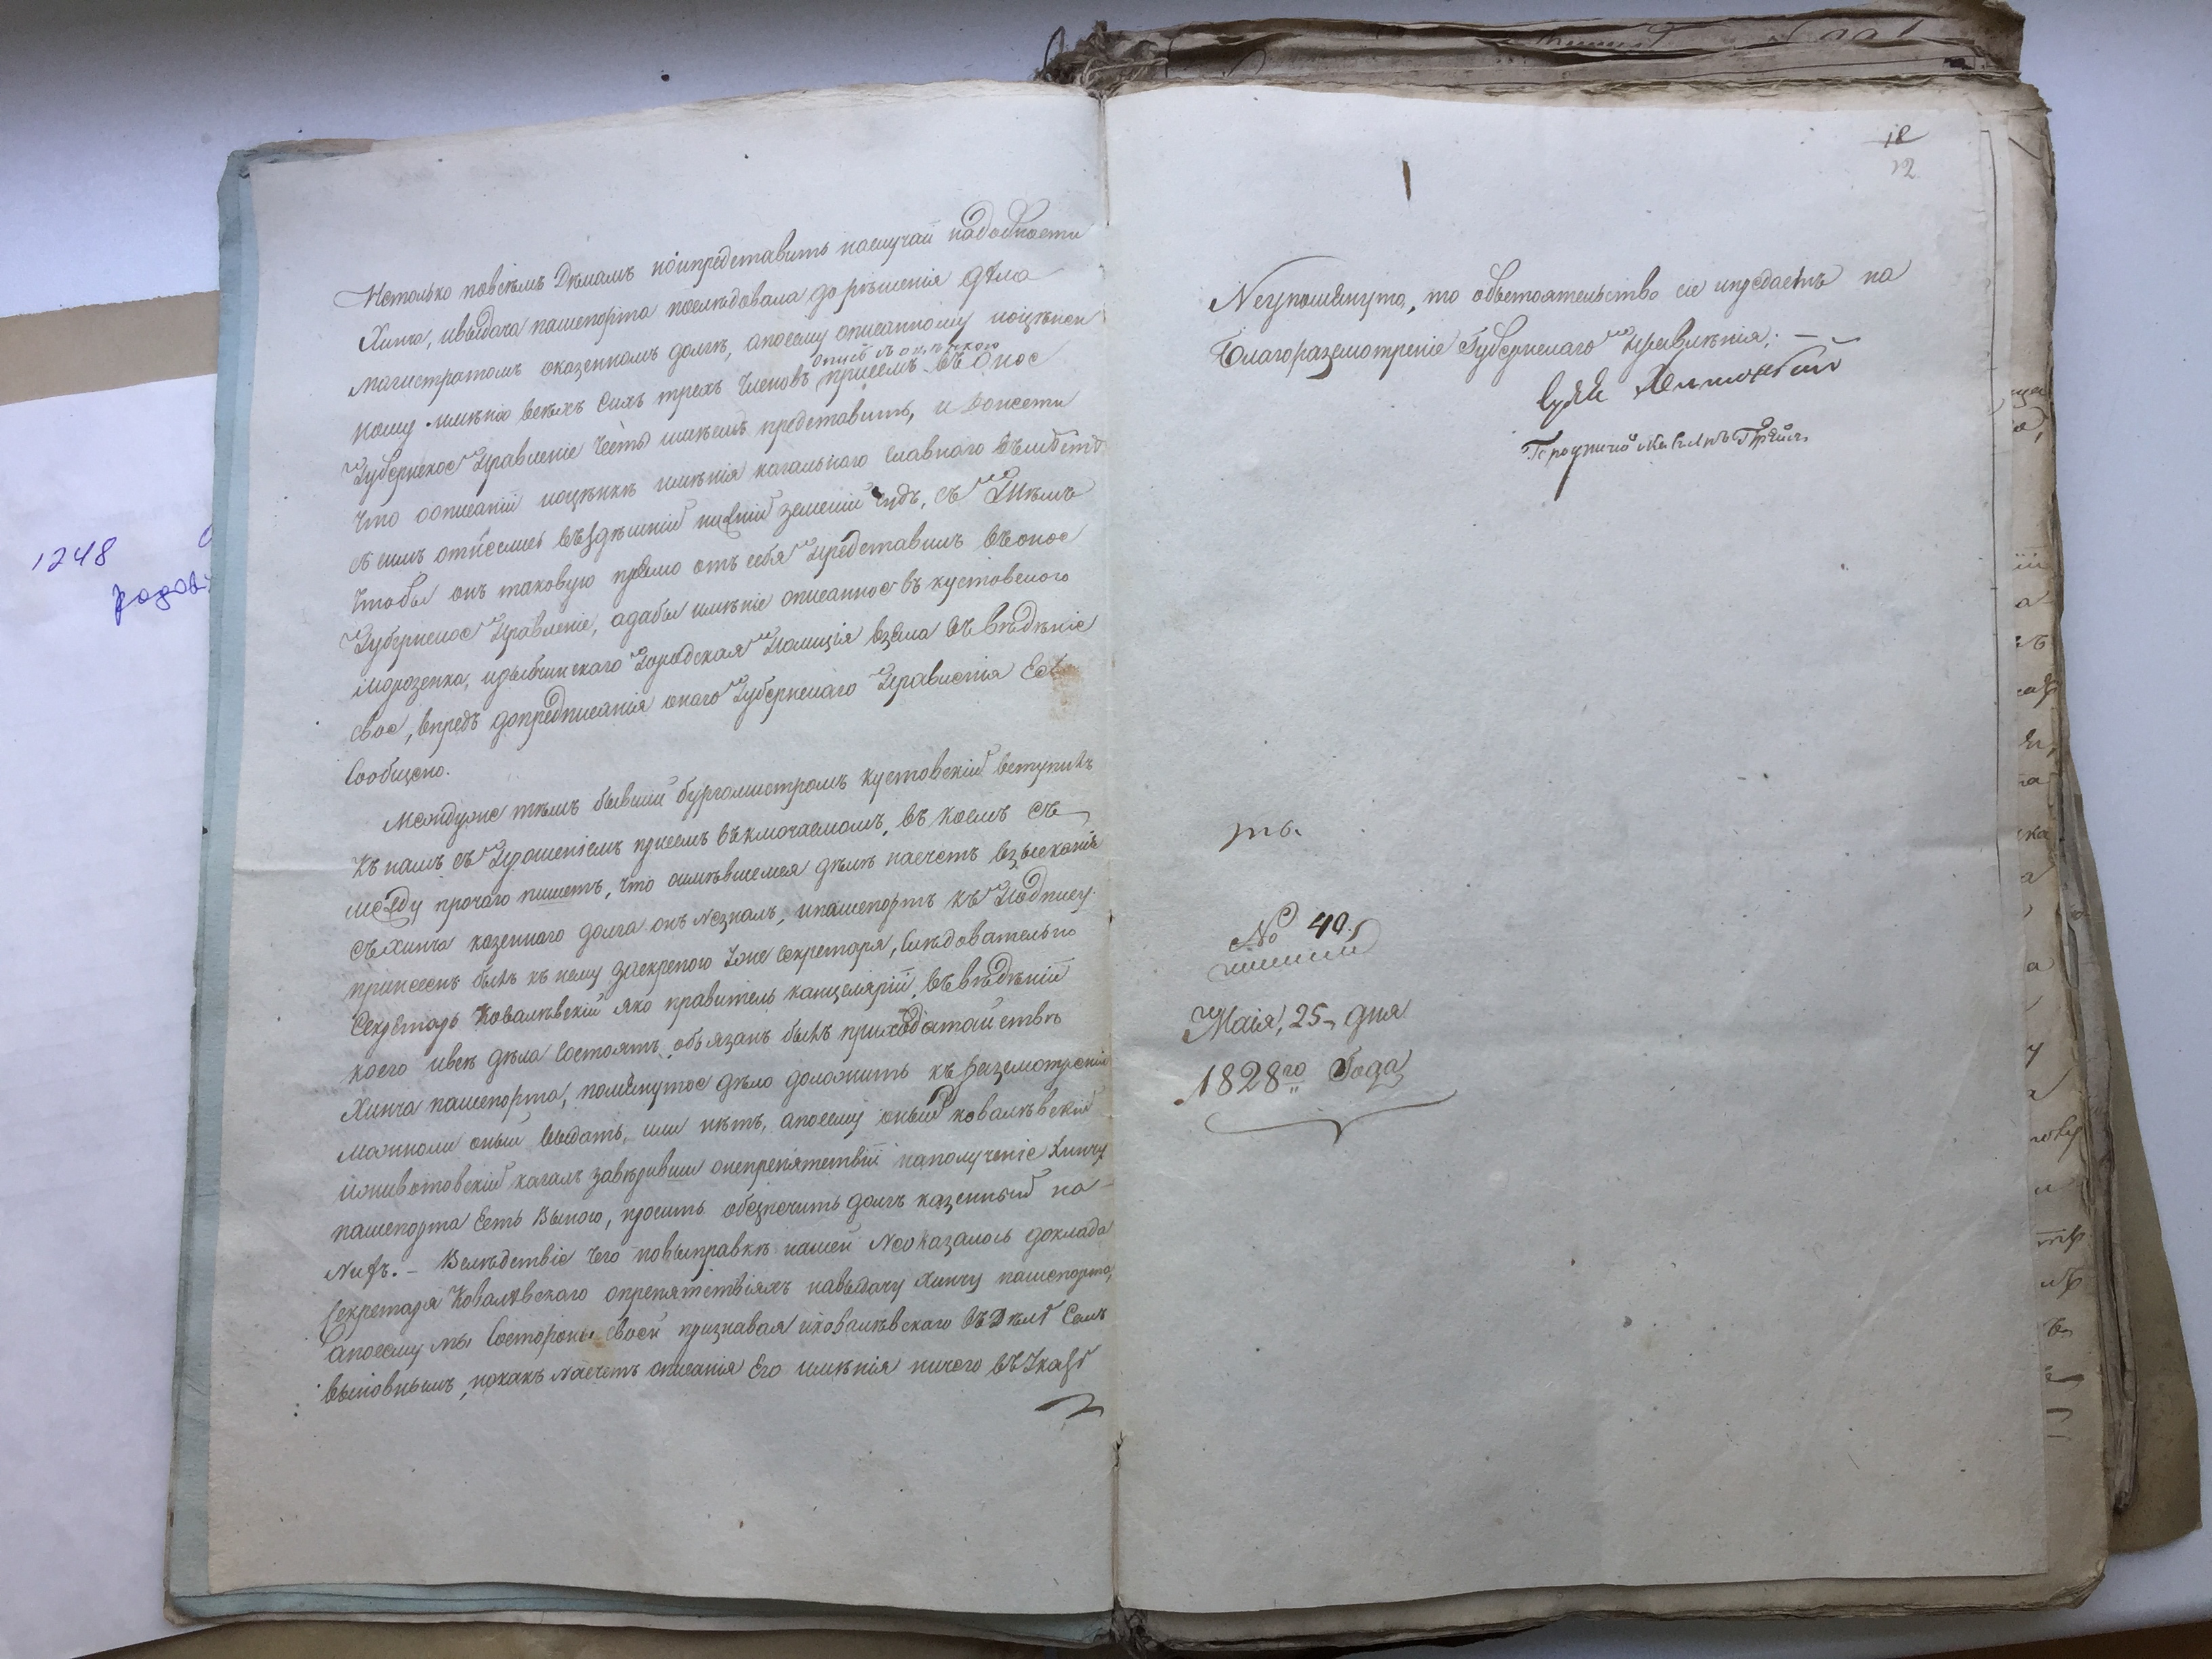 Нетолько повсѣмъ Дѣламъ но ипредставить наслучай надобности
Хинча, ивыдача пашепорта послѣдовала до рѣшенія дѣла
магистратомъ оказенномъ долгѣ, апосему описанному иоцѣнен
опись съ оцѣнкою
ному имѣнію всѣхъ сихъ трехъ Членовъ присемъ въ оное
Губернское Правленіе Честь имѣемъ представить, и донести
что оописаніи иоцѣнкѣ имѣнія кагального главного вмѣстѣ
съ симъ отнеслись въ здѣшній нижній земский судъ, съ тѣмъ
чтобы онъ таковую прямо отъ себя представилъ въ оное
Губернское Правленіе, адабы имѣніе описанное въ кустовского
морозенка, и Городская Полиція взяла въ вѣдѣніе
свое, впредь допредписанія онаго Губернскаго Правленія Ей
Сообщено.
Междуже тѣмъ бывший бургомистромъ кустовский вступилъ
къ намъ съ Прошеніемъ присемъ включаемомъ, въ коемъ
между прочаго пишетъ, что оимѣвшемся дѣлѣ насчетъ взысканія
съ Хинча казенного долга онъ незналъ, ипашепортъ къ Подпису
принесенъ былъ къ нему заскрепою тоже секретаря, слѣдовательно
Секретарь Ковалѣвский яко правитель канцеляріи, въ вѣдѣніи
коего ивсѣ дѣла состоятъ, обязанъ былъ приходатайствѣ
Хинча пашепорта, помянутое дѣло доложить къ разсмотренію
можноли оный выдать, или нѣтъ, апосему оный ковалѣвский
иживотовский кагалъ завѣривши онепрепятствіи наполученіе Хинчу
пашепорта Есть виною, просить обезпечить долгъ казенный на
Nихъ. — Вслѣдствіе чего повыправкѣ нашей Nеоказалось доклада
секретаря Ковалѣвского опрепятствіяхъ навыдачу Хинчу пашепорта,
апосему мы состороны своей признавая иковалѣвскаго въ Дѣлѣ семъ
виновнымъ, нокакъ насчетъ описанія Его имѣнія ничего въ указѣ
18
12
Nеупомянуто, то обстоятельство сіе ипредаетъ на
Благоразсмотреніе Губернскаго Правленія; —
судья
Городничий
№ 40.
Маія, 25, дня
1828го Года
1248